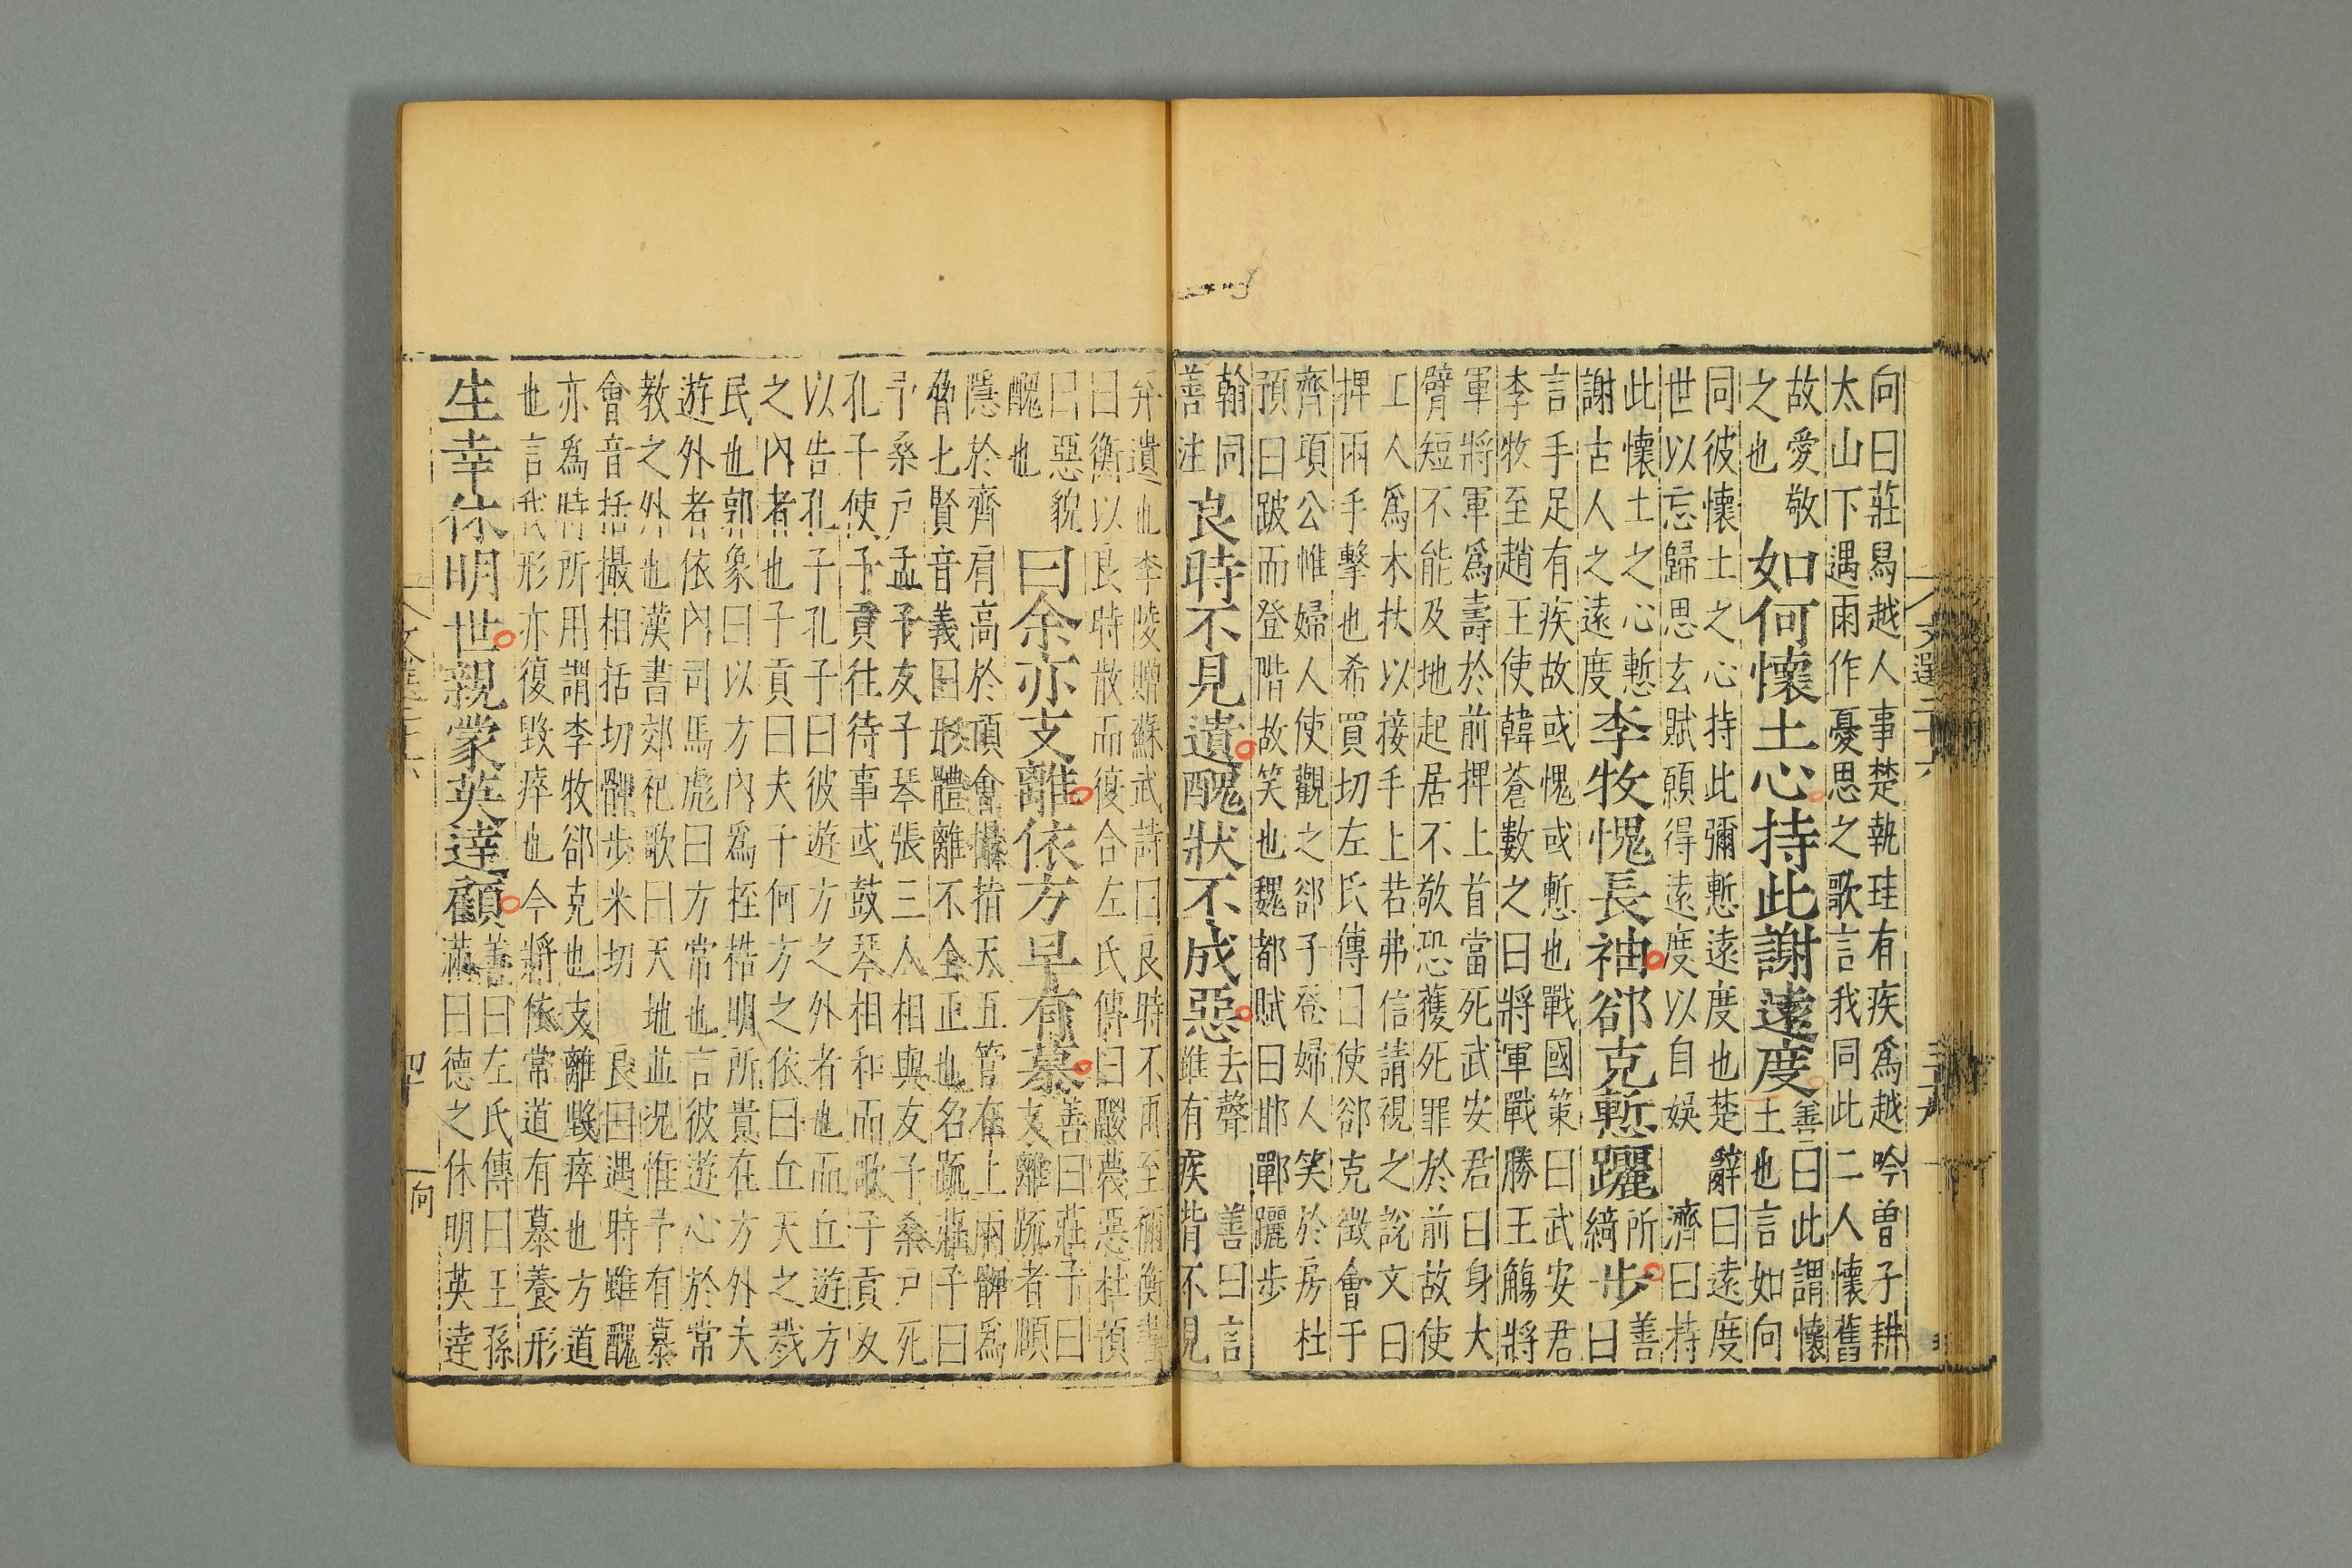 文選二十六
向曰莊舄越人事楚執珪有疾爲越吟曾子耕
太山下遇雨作憂思之歌言我同此二人懷舊
故愛敬
之也
如何懷土心持此謝遠度
善曰此謂懷
土也言如向
同彼懷土之心持此彌慙遠度也楚辭曰遠度
世以忘歸思玄賦願得遠度以自娛 濟曰持
此懷土之心慙
謝古人之遠度
李牧愧長袖郤克慙躧
所
綺
步
善
曰
言手足有疾故或愧或慙也戰國策曰武安君
李牧至趙王使韓蒼數之曰將軍戰勝王觴將
軍將軍爲壽於前捭上首當死武安君曰身大
臂短不能及地起居不敬恐獲死罪於前故使
工人爲木扶以接手上若弗信請視之說文曰
捭兩手擊也希買切左氏傳曰使郤克徵會于
齊項公惟婦人使觀之郤子登婦人笑於房杜
預曰跛而登階故笑也魏都賦曰邯鄲躧步
翰同
善注
良時不見遺醜狀不成惡
去聲 善曰言
雖有疾皆不見
弃遺也李陵贈蘇武詩曰良時不再至禰衡書
曰衡以良時散而復合左氏傳曰鬷蔑惡杜預
曰惡貌
醜也
曰余亦支離依方早有慕
善曰莊子曰
支離疏者順
隱於齊肩高於頂會撮指天五管在上兩髀爲
脅七賢音義曰形體離不全正也名疏莊子曰
子桑户孟子友子琴張三人相與友子桑户死
孔子使子貢往待事或鼓琴相和而歌子貢反
以告孔子孔子曰彼遊方之外者也而丘遊方
之內者也子貢曰夫子何方之依曰丘天之戮
民也郭象曰以方內爲桎梏明所貴在方外夫
遊外者依內司馬彪曰方常也言彼遊心於常
教之外也漢書郊祀歌曰天地並況惟予有慕
會音括撮相括切髀步米切 良曰遇時雖醜
亦爲時所用謂李牧郤克也支離毀瘁也方道
也言我形亦復毀瘁也今將依常道有慕養形
生幸休明世親蒙英達顧
善曰左氏傳曰王孫
滿曰德之休明英達
文選二十六
四十
向